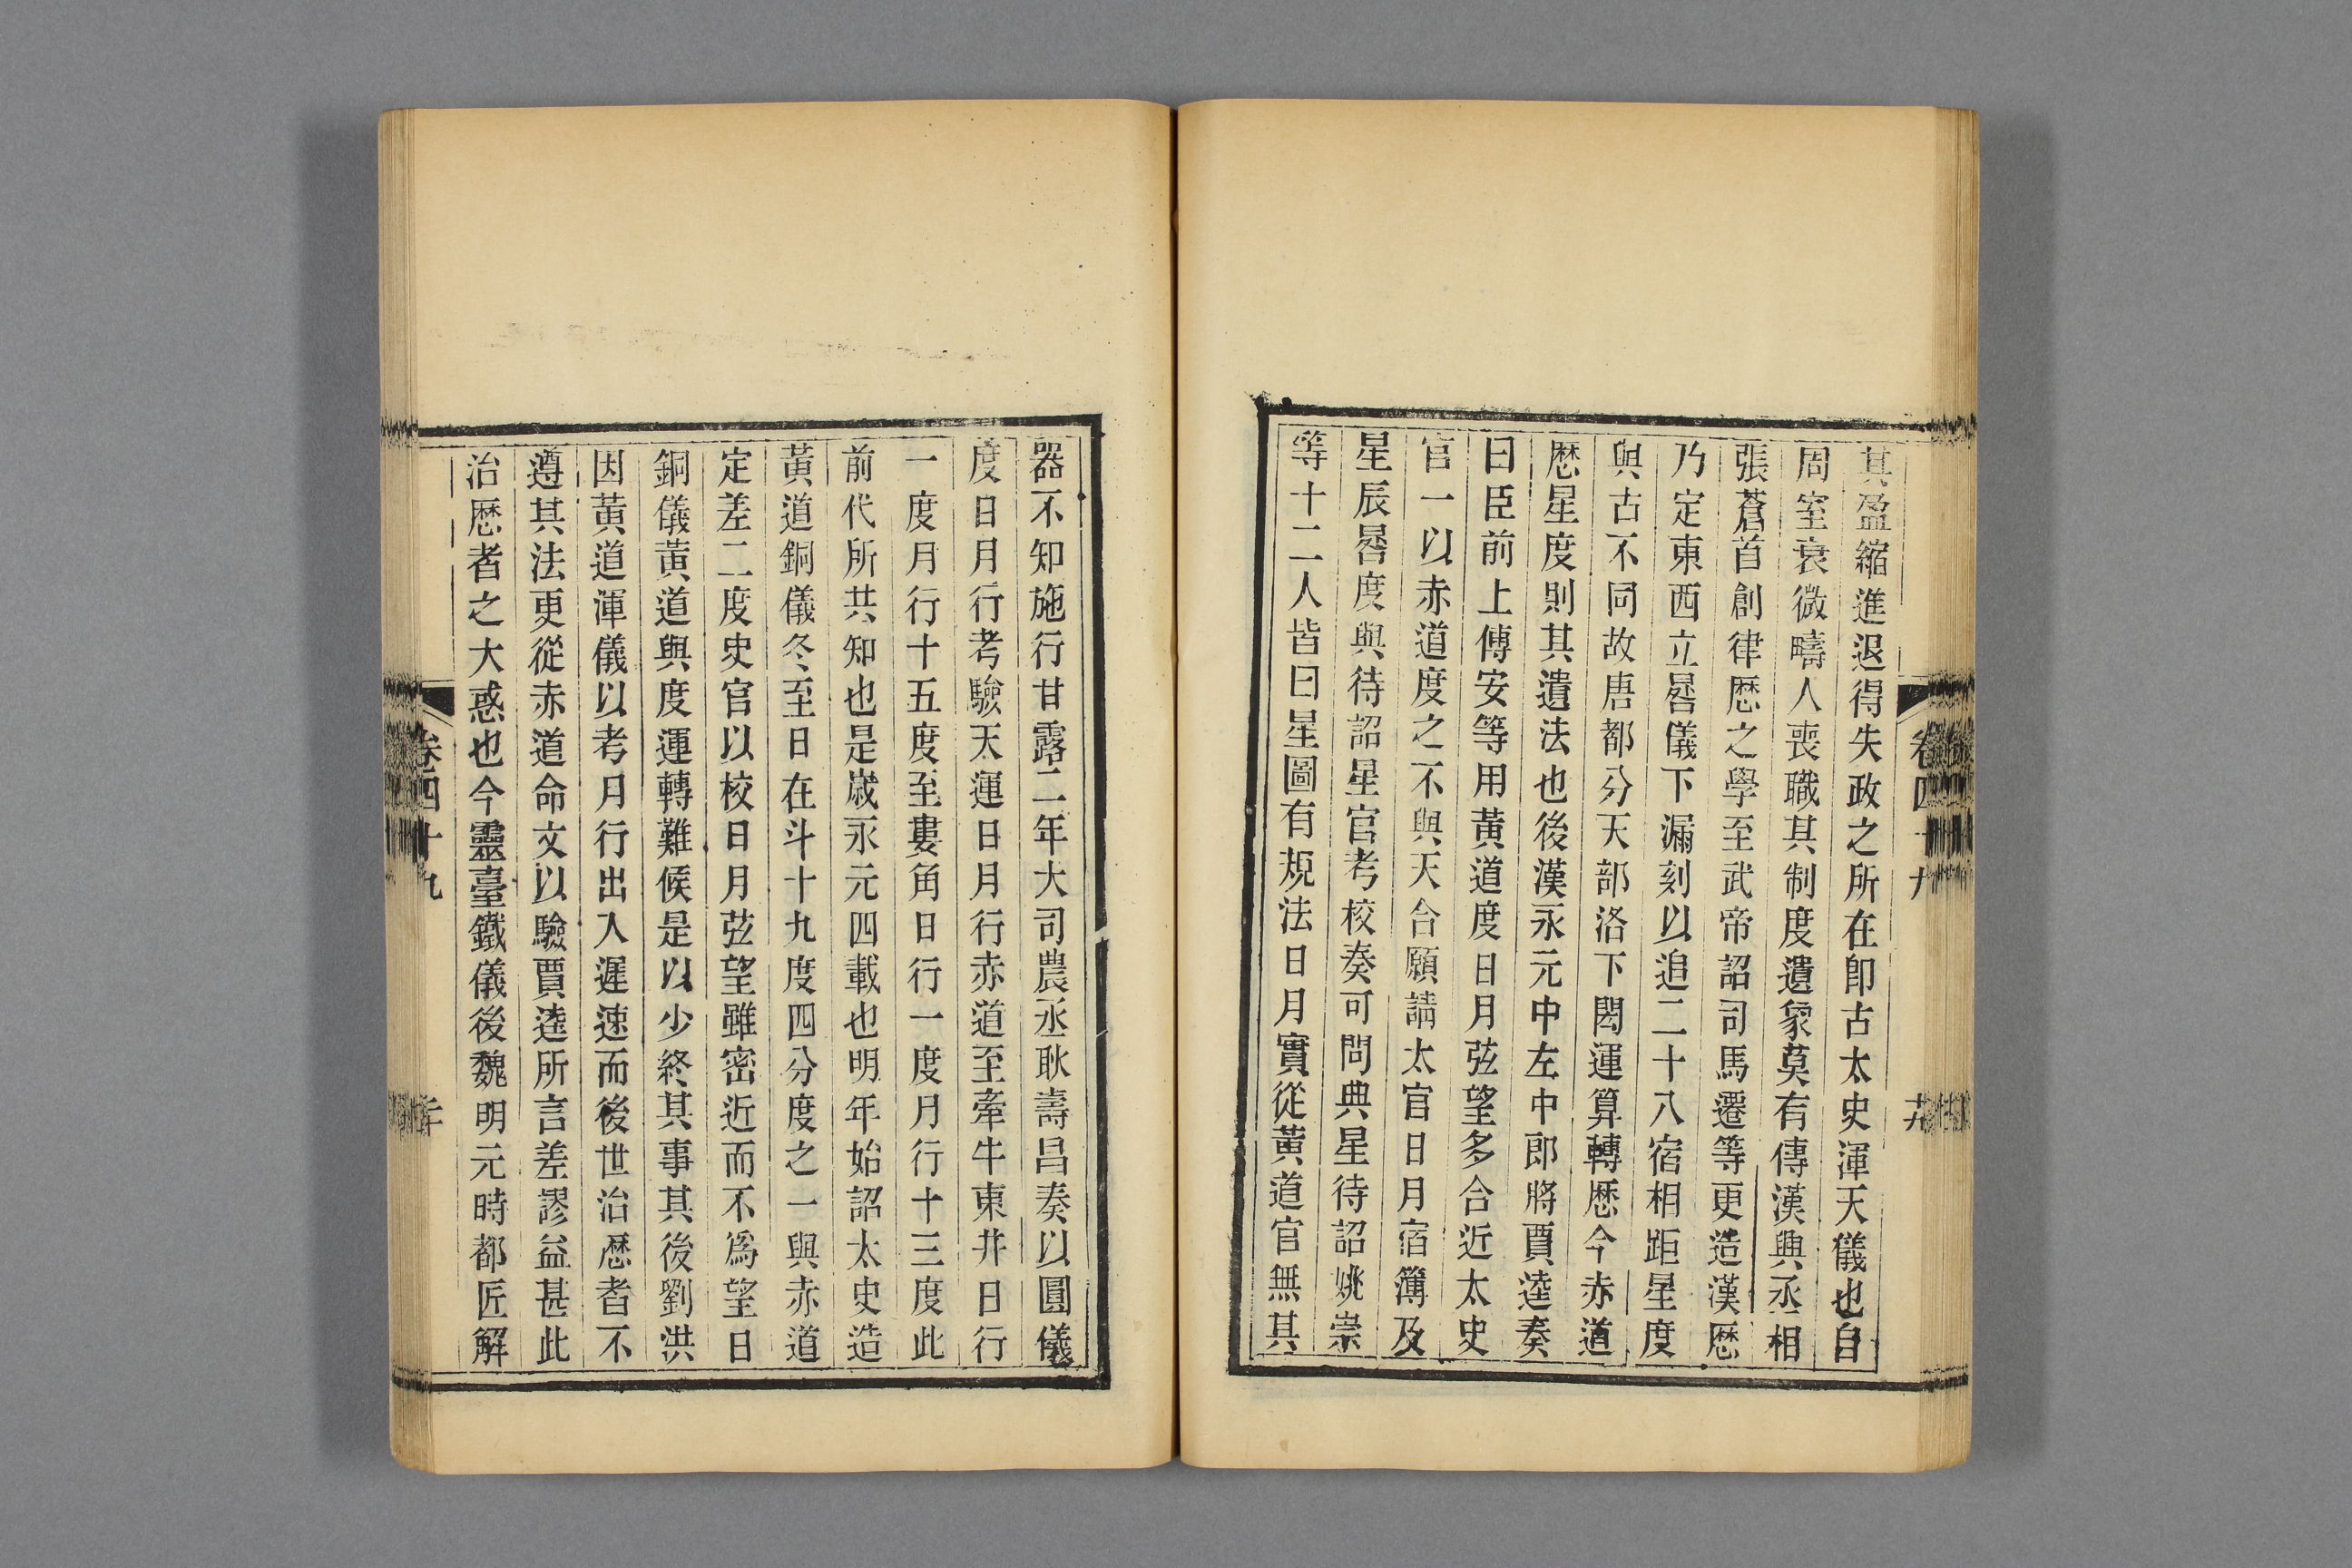 其盈縮進退得失政之所在卽古太史渾天儀也自
周室衰微疇人喪職其制度遺象莫有傳漢興丞相
張蒼首創律厯之學至武帝詔司馬遷等更造漢厯
乃定東西立晷儀下漏刻以追二十八宿相距星度
與古不同故唐都分天部洛下閎運算轉厯今赤道
厯星度則其遺法也後漢永元中左中郎將賈逵奏
曰臣前上傅安等用黃道度日月弦望多合近太史
官一以赤道度之不與天合願請太官日月宿簿及
星辰晷度與待詔星官考校奏可問典星待詔姚崇
等十二人皆曰星圖有規法日月實從黃道官無其
器不知施行甘露二年大司農丞耿壽昌奏以圓儀
度日月行考驗天運日月行赤道至牽牛東井日行
一度月行十五度至婁角日行一度月行十三度此
前代所共知也是歲永元四載也明年始詔太史造
黃道銅儀冬至日在斗十九度四分度之一與赤道
定差二度史官以校日月弦望雖密近而不爲望日
銅儀黃道與度運轉難候是以少終其事其後劉洪
因黃道渾儀以考月行出入遲速而後世治厯者不
遵其法更從赤道命文以驗賈逵所言差謬益甚此
治厯者之大惑也今靈臺鐵儀後魏明元時都匠解
卷四十九